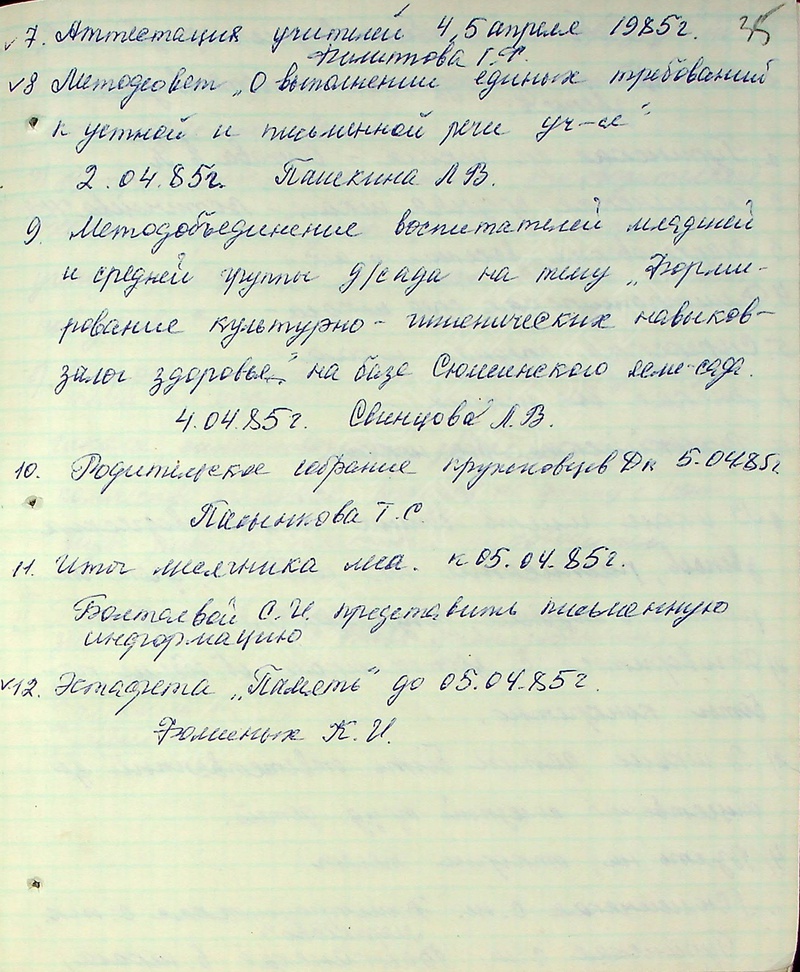 35
✓7. Аттестация учителей 4,5 апреля 1985г.
Филиппова Г.Ф.
✓8 Методсовет „О выполнении единых требований
к устной и письменной речи уч-ся"
2.04.85г. Паискина Л.В.
9. Методобъединение воспитателей младшей
и средней группы д/сада на тему „Форми-
рование культурно-гигиенических навыков-
залог здоровья" на базе Сюмсинского ясле-сада.
4.04.85г. Свинцова Л.В.
10. Родительское собрание кружковцев Дп 5.04.85г
Т.С.
11. Итог месячника леса. к 05.04.85г.
Болтаевой С.И. представить письменную
информацию
✓12. Эстафета „Память" до 05.04.85г.
Фоминых К.И.